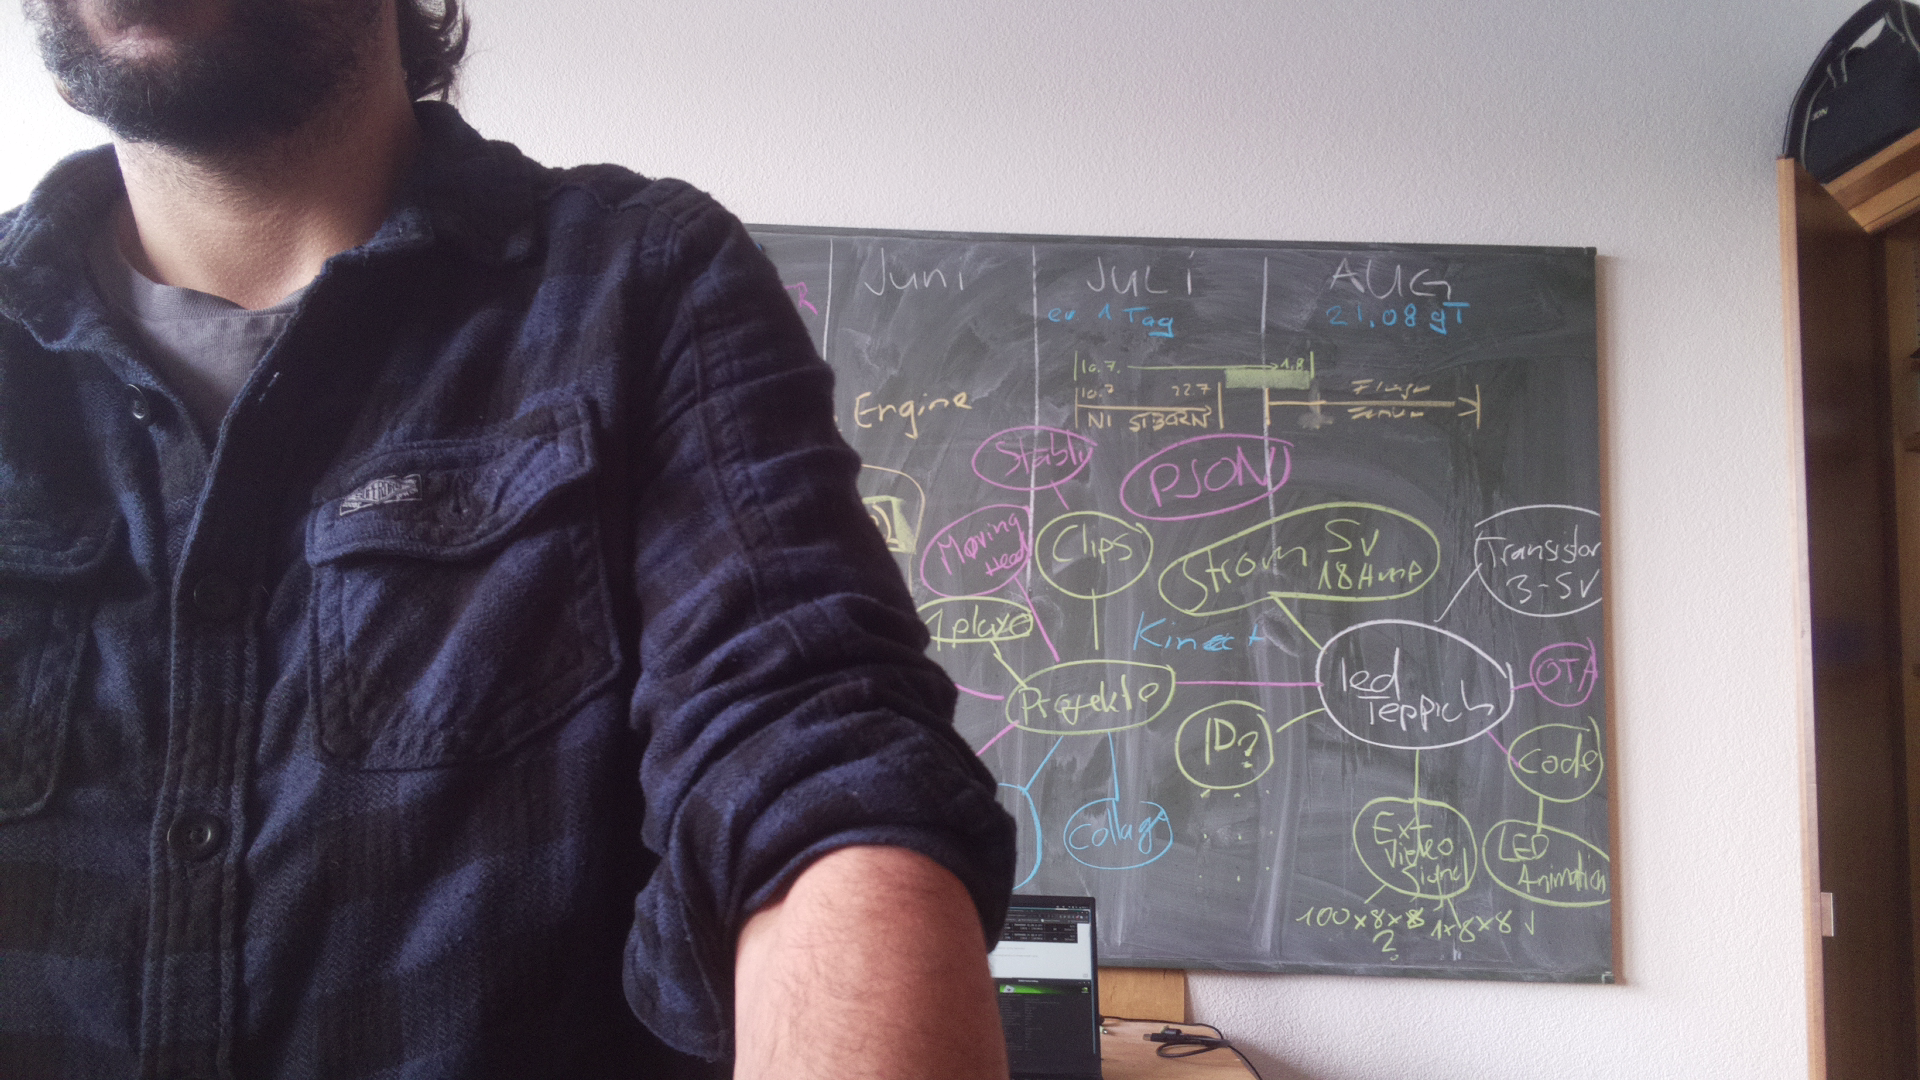 Juni
JULI
AUG
R
ev 1 Tag
21.08 gT
10.7.
1.8
10.7
22.7
NI
Engine
Stabli
PJSON
Moving
Head
Clips
Strom 5v
18Amp
Transistor
3-5v
1 playe
Kinect
Projekte
led
Teppich
OTA
ID?
Code
Collage
Ext
Video
Signal
LED
Animation
100x8x8
?
1x8x8